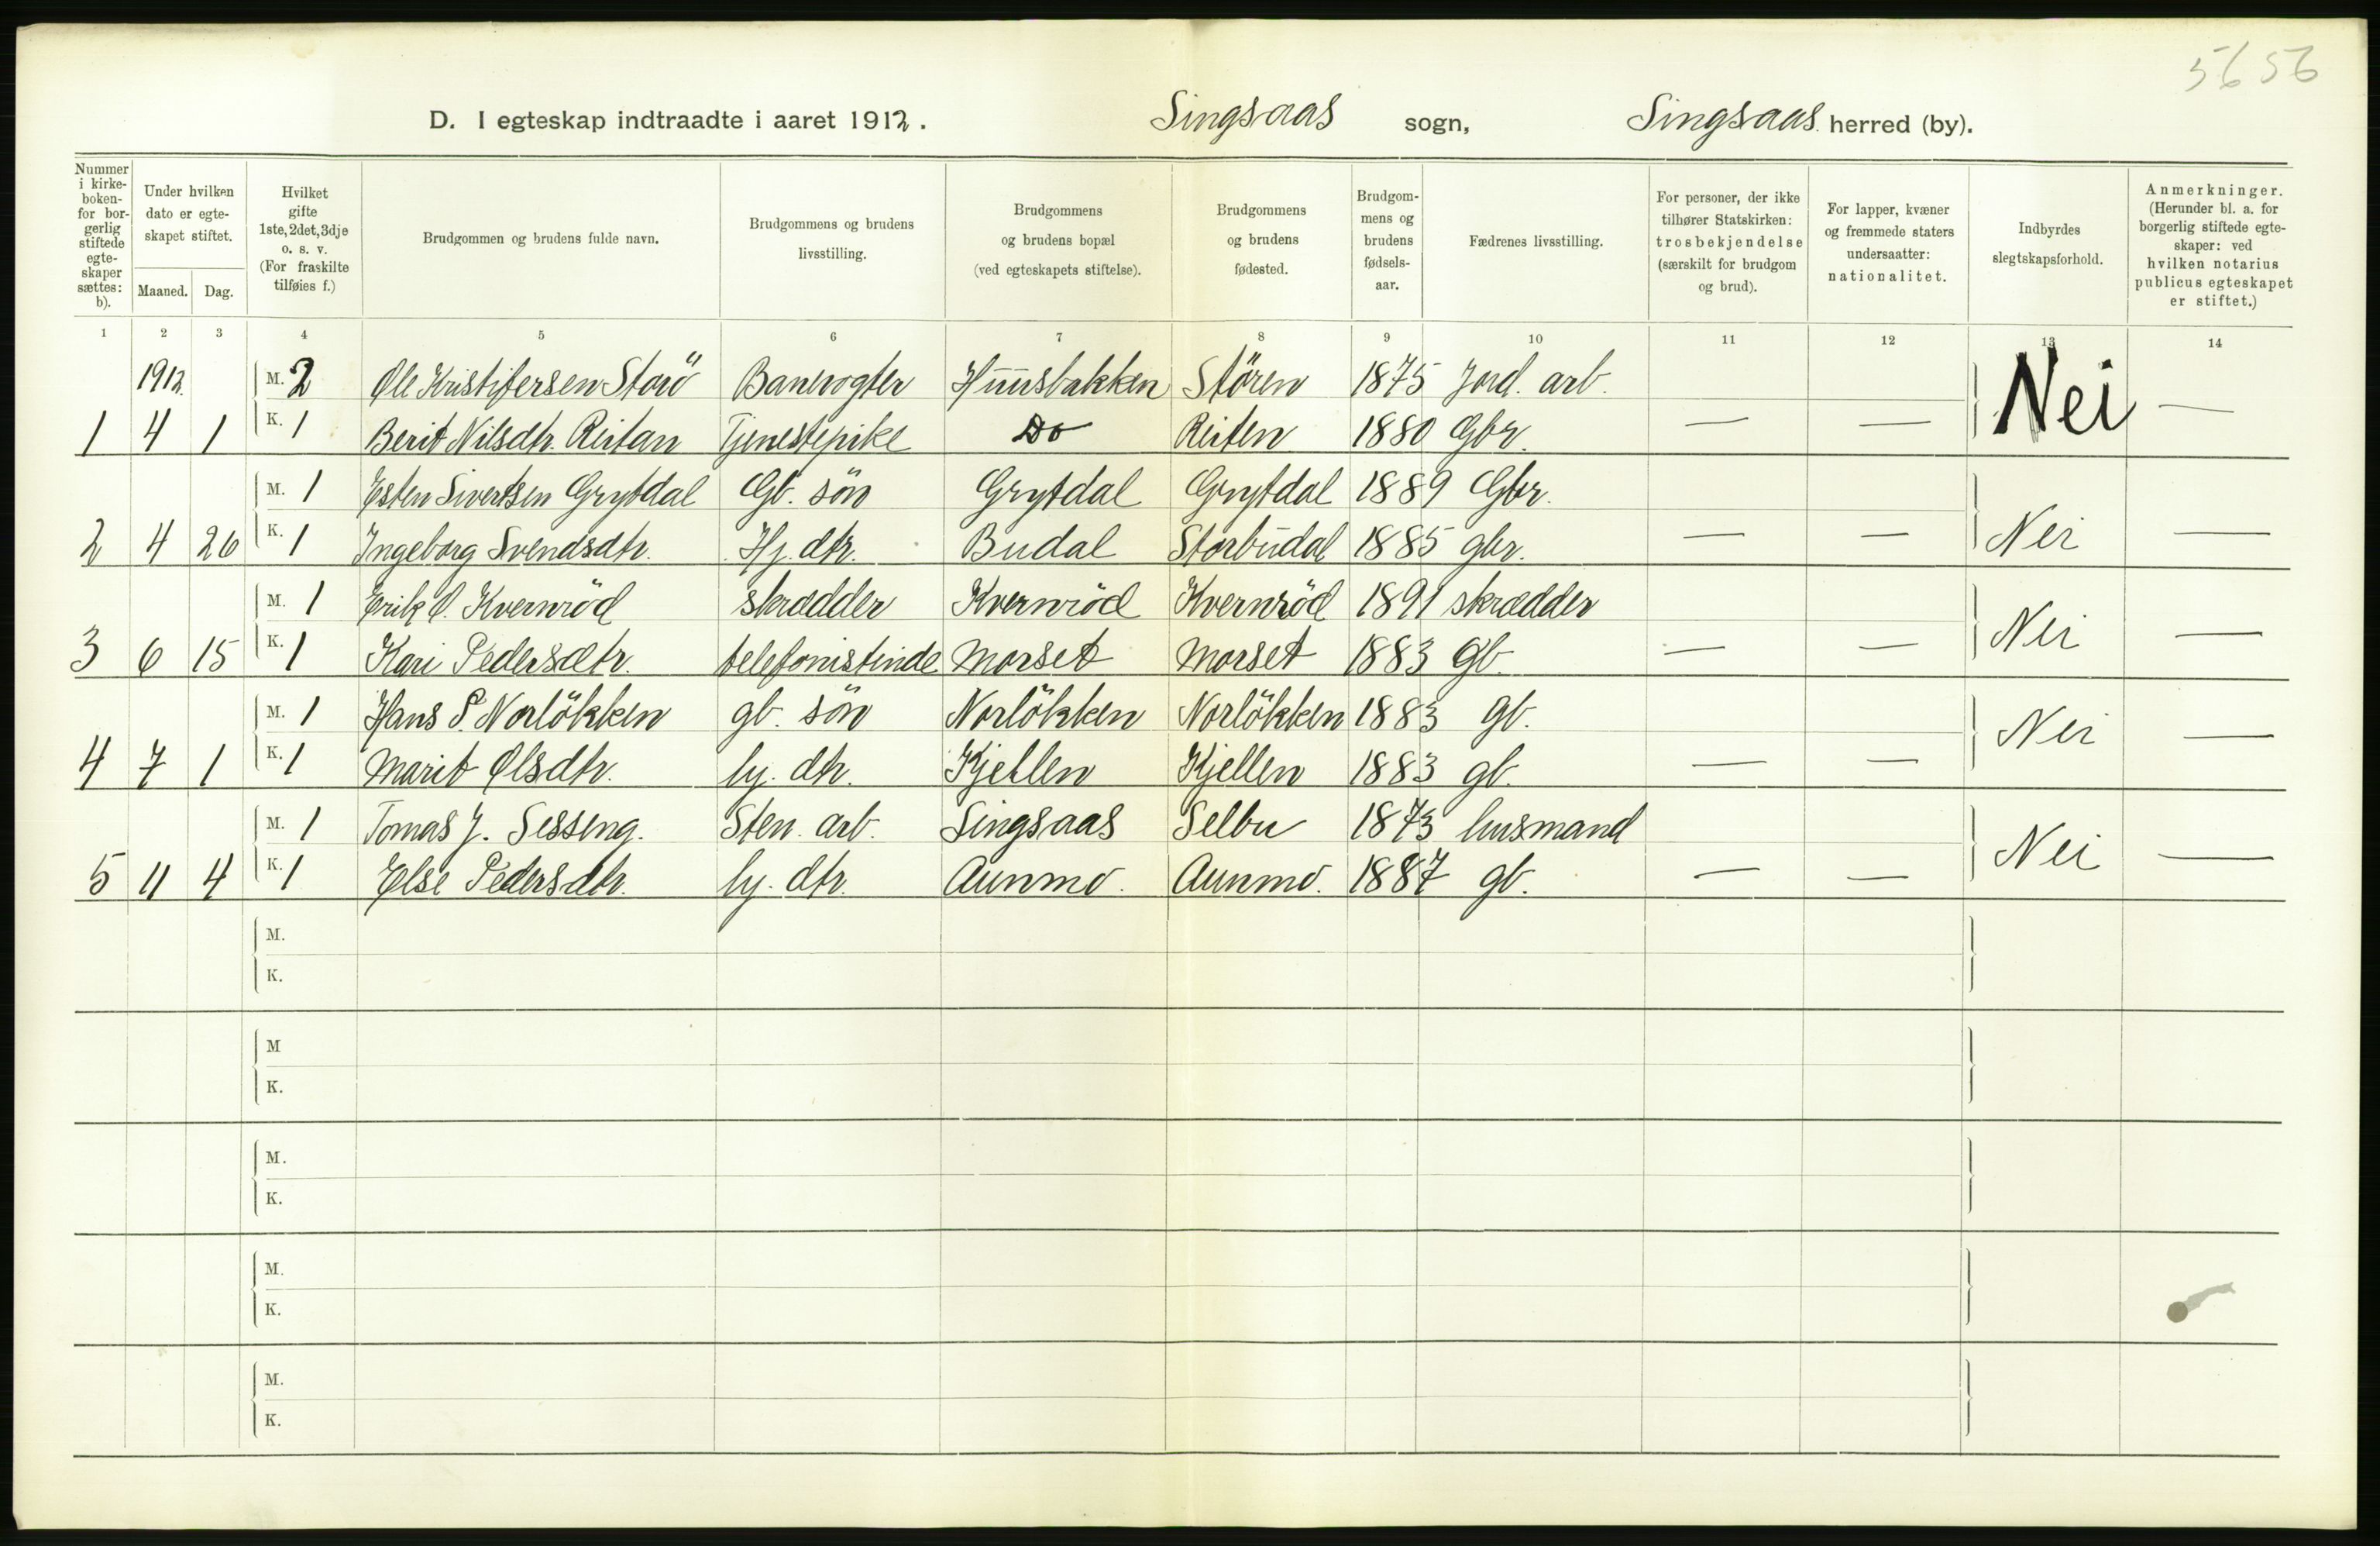 5656
D. I egteskap indtraadte i aaret 1912. Singsaas sogn, Singsaas herred (by).
Nummer i kirke-boken- for bor-gerlig stiftede egte-skaper sættes: b).
Under hvilken dato er egte-skapet stiftet.
Maaned. Dag.
Hvilket gifte 1ste, 2det, 3dje o. s. v. (For fraskilte tilføies f.)
Brudgommen og brudens fulde navn.
Brudgommens og brudens livsstilling.
Brudgommens og brudens bopæl (ved egteskapets stiftelse).
Brudgommens og brudens fødested.
Brudgom-mens og brudens fødsels-aar.
Fædrenes livsstilling.
For personer, der ikke tilhører Statskirken: trosbekjendelse (særskilt for brudgom og brud).
For lapper, kvæner og fremmede staters undersaatter: nationalitet.
Indbyrdes slegtskapsforhold.
Anmerkninger. (Herunder bl. a. for borgerlig stiftede egte-skaper: ved hvilken notarius publicus egteskapet er stiftet.)
1 2 3 4 5 6 7 8 9 10 11 12 13 14
1912. M. 2 Ole Kristifersen Storö Banevogter Huusbakken Stören 1875 Jord. arb. Nei —
1 4 1 K. 1 Berit Nilsdtr. Reitan Tjenestepike Do Reiten 1880 Gbr. — —
M. 1 Esten Sivertsen Grytdal Gb. sön Grytdal Grytdal 1889 Gbr.
2 4 26 K. 1 Ingeborg Svendsdtr. Hj. dtr. Budal Storbudal 1885 gbr. — — Nei —
M. 1 Erik O. Kvernröd skrædder Kvernröd Kvernröd 1891 skrædder
3 6 15 K. 1 Kari Pedersdtr. telefonistinde Morset Morset 1883 Gb. — — Nei —
M. 1 Hans P. Norlökken gb. sön Norlökken Norlökken 1883 gb.
4 7 1 K. 1 Marit Olsdtr. hj. dtr. Kjellen Kjellen 1883 gb. — — Nei —
M. 1 Tomas J. Sesseng. Sten. arb. Singsaas Selbu 1873 husmand
5 11 4 K. 1 Else Pedersdtr. hj. dtr. Aunmo. Aunmo. 1887 gb. — — Nei —
M.
K.
M
K.
M.
K.
M.
K.
M.
K.